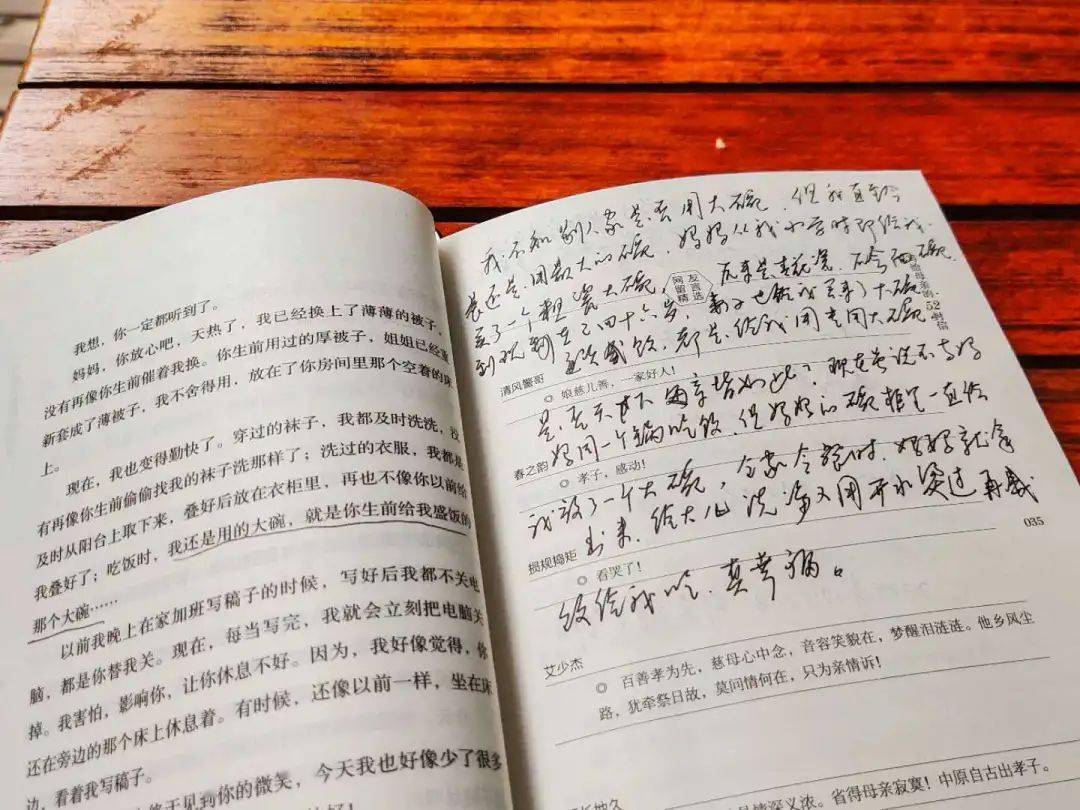 我想，你一定都听到了。
妈妈，你放心吧，天热了，我已经换上了薄薄的被子，
没有再像你生前催着我换。你生前用过的厚被子，姐姐已经重
新套成了薄被子，我不舍得用，放在了你房间里那个空着的床
上。
现在，我也变得勤快了。穿过的袜子，我都及时洗洗，没
有再像你生前偷偷找我的袜子洗那样了；洗过的衣服，我都是
及时从阳台上取下来，叠好后放在衣柜里，再也不像你以前给
我叠好了；吃饭时，我还是用的大碗，就是你生前给我盛饭的
那个大碗……
以前我晚上在家加班写稿子的时候，写好后我都不关电
脑，都是你替我关。现在，每当写完，我就会立刻把电脑关
掉。我害怕，影响你，让你休息不好。因为，我好像觉得，你
还在旁边的那个床上休息着。有时候，还像以前一样，坐在床
边，看着我写稿子。
见到你的微笑，今天我也好像少了很多
我不知别人家是否用大碗，但我直到
是还是用最大的碗，妈妈从我小舍时即给我
买了一个粗瓷大碗，
到现在已四十六岁，妻子也给我买来大碗
盛饭，都是给我用专用大碗
是否天下母亲皆如此？现在虽说不与妈
妈同一个锅吃饭，但妈妈的碗柜里一直给
我放了一个大碗，全家会餐时，妈妈就拿
出来，给大儿洗净又用开水烫过再盛
饭给我吃，真幸福。
网友
留言
精选
52
清风馨哥
◎ 娘慈儿善，一家好人！
春之韵
◎ 孝子，感动！
损规捣矩
◎ 看哭了！
035
艾少杰
◎ 百善孝为先，慈母心中念，音容笑貌在，梦醒泪涟涟。他乡风尘
路，犹牵祭日故，莫问情何在，只为亲情诉！
情深义浓。省得母亲寂寞！中原自古出孝子。